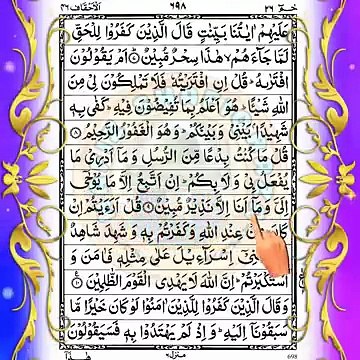 الاحقاف ٤٦ ٦٩٨ حٰمٓ ٢٦
عَلَيْهِمْ اٰيٰتُنَا بَيِّنٰتٍ قَالَ الَّذِيْنَ كَفَرُوْا لِلْحَقِّ
لَمَّا جَآءَهُمْ ۙ هٰذَا سِحْرٌ مُّبِيْنٌ ۝ اَمْ يَقُوْلُوْنَ
افْتَرٰىهُ ؕ قُلْ اِنِ افْتَرَيْتُهٗ فَلَا تَمْلِكُوْنَ لِيْ مِنَ
اللّٰهِ شَيْـًٔا ؕ هُوَ اَعْلَمُ بِمَا تُفِيْضُوْنَ فِيْهِ ؕ كَفٰى بِهٖ
شَهِيْدًۢا بَيْنِيْ وَبَيْنَكُمْ ؕ وَهُوَ الْغَفُوْرُ الرَّحِيْمُ ۝
قُلْ مَا كُنْتُ بِدْعًا مِّنَ الرُّسُلِ وَمَاۤ اَدْرِيْ مَا
يُفْعَلُ بِيْ وَلَا بِكُمْ ؕ اِنْ اَتَّبِعُ اِلَّا مَا يُوْحٰۤى
اِلَيَّ وَمَاۤ اَنَا اِلَّا نَذِيْرٌ مُّبِيْنٌ ۝ قُلْ اَرَءَيْتُمْ اِنْ
كَانَ عِنْدِ اللّٰهِ وَكَفَرْتُمْ بِهٖ وَشَهِدَ شَاهِدٌ
بَنِيْۤ اِسْرَآءِيْلَ عَلٰى مِثْلِهٖ فَاٰمَنَ وَ
اسْتَكْبَرْتُمْ ؕ اِنَّ اللّٰهَ لَا يَهْدِى الْقَوْمَ الظّٰلِمِيْنَ ۝
وَقَالَ الَّذِيْنَ كَفَرُوْا لِلَّذِيْنَ اٰمَنُوْا لَوْ كَانَ خَيْرًا مَّا
سَبَقُوْنَاۤ اِلَيْهِ ؕ وَاِذْ لَمْ يَهْتَدُوْا بِهٖ فَسَيَقُوْلُوْنَ
هٰذَاۤ منزل ٦ 698